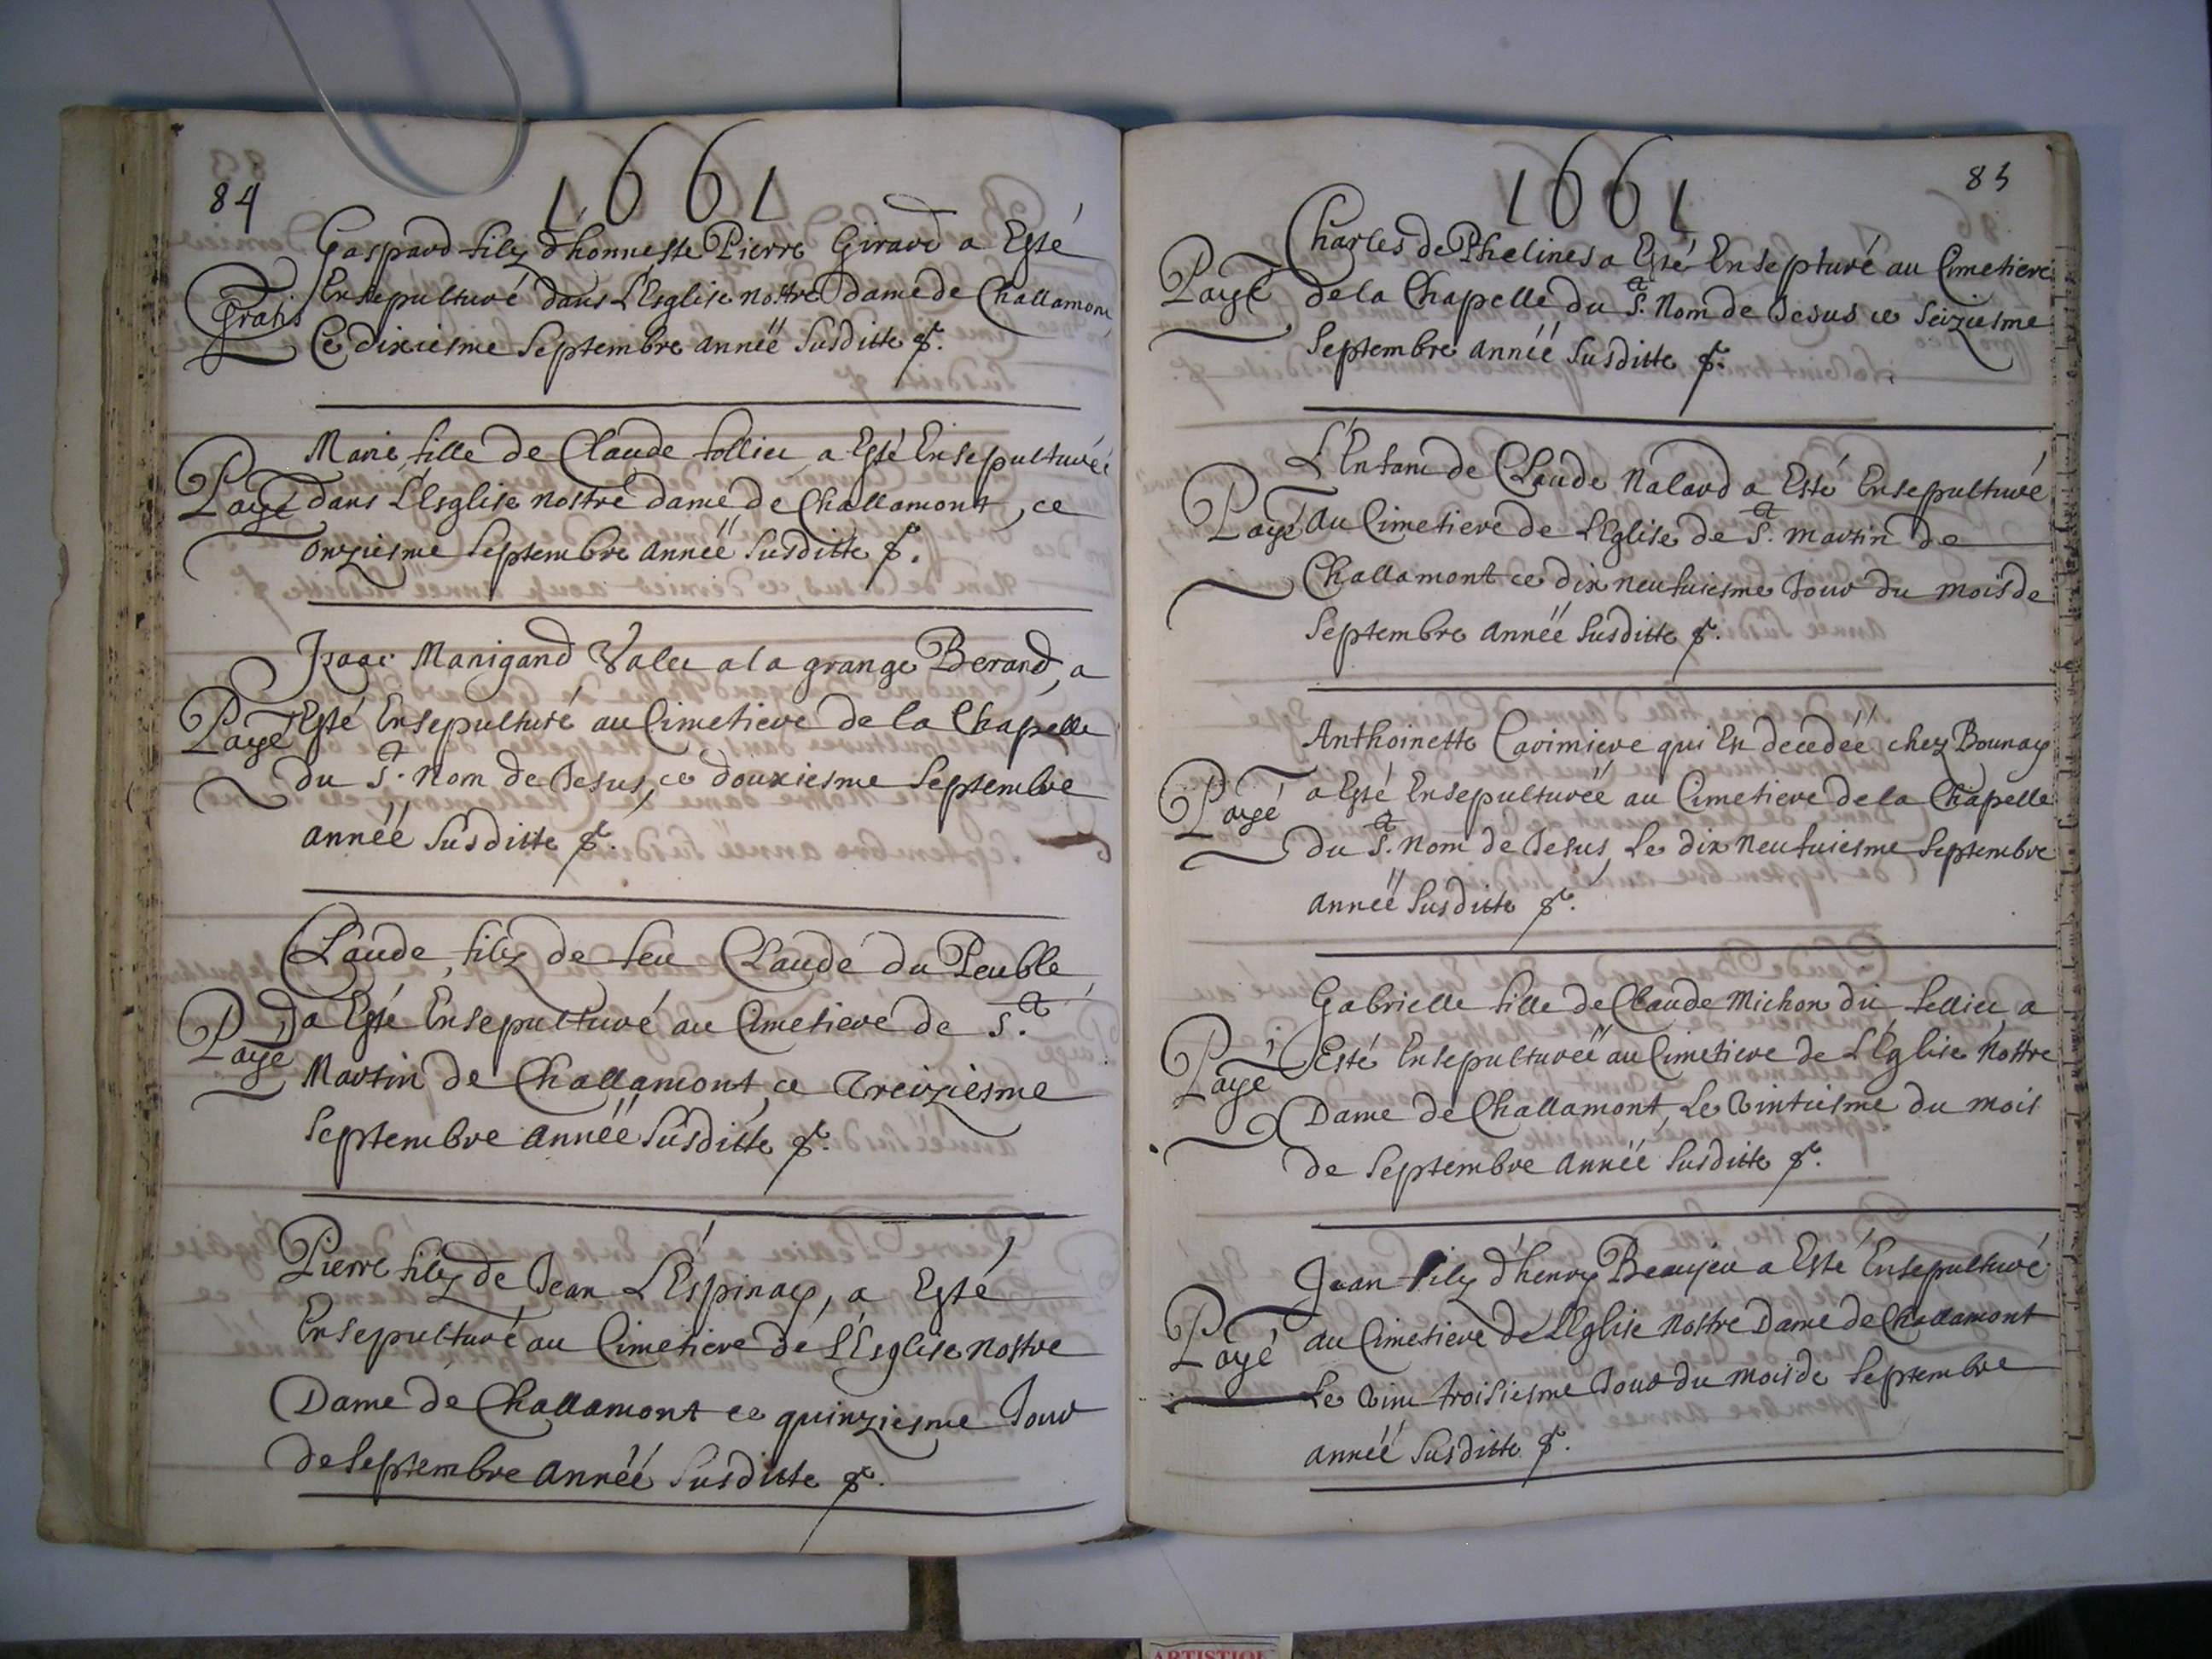 84
1661
Gaspard filz d'honneste Pierre Girard a Esté
Gratis
Ensepulturé dans L'Esglise nostre dame de Challamont
Ce dixiesme Septembre année Susditte &.
Marie fille de Claude follieu a Esté Ensepulturée
Payé
dans L'Esglise nostre dame de Challamont, ce
onziesme Septembre année Susditte &.
Isaac Manigand Valet a la grange Berand, a
Payé
Esté Ensepulturé au Cimetiere de la Chapelle
du St. Nom de Jesus, ce douxiesme Septembre
année Susditte &.
Claude, filz de feu Claude du Peuble
Payé
a Esté Ensepulturé au Cimetiere de St.
Martin de Challamont, ce Treiziesme
Septembre année Susditte &.
Pierre filz de Jean L'Espinay, a Esté
Ensepulturé au Cimetiere de L'Esglise nostre
Dame de Challamont ce quinziesme Jour
de Septembre année Susditte &.
83
1661
Charles de Phelines a Esté Ensepturé au Cimetiere
Payé
de la Chapelle du St. Nom de Jesus ce Seiziesme
Septembre année Susditte &.
L'Enfant de Claude Nalard a Esté Ensepulturé
Payé
au Cimetiere de L'Eglise de St. Martin de
Challamont ce dix neufuiesme Jour du mois de
Septembre année Susditte &.
Anthoinette Carimiere qui Est decedée chez Bounay
Payé
a Esté Ensepulturée au Cimetiere de la Chapelle
du St. Nom de Jesus, Le dix Neufuiesme Septembre
année Susditte &.
Gabrielle fille de Claude Michon dit fellieu, a
Payé
Esté Ensepulturée au Cimetiere de L'Eglise Nostre
Dame de Challamont, Le Vintiesme du mois
de Septembre année Susditte &.
Jean filz d'henry Beaujeu a Esté Ensepulturé
Payé
au Cimetiere de L'Eglise Nostre Dame de Challamont
Le Vint troisiesme Jour du mois de Septembre
année Susditte &.